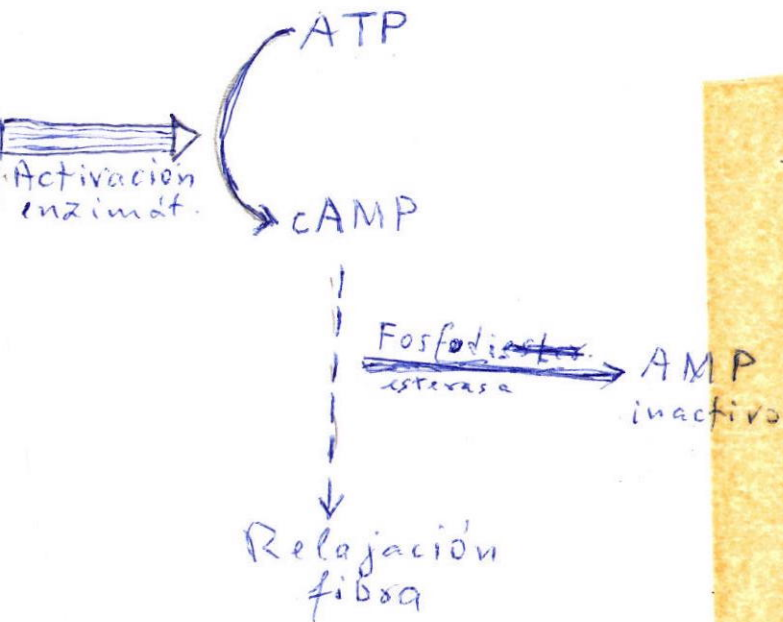 ATP
Activación
enzimát.
cAMP
Fosfodi
esterasa
AMP
inactivo
Relajación
fibra